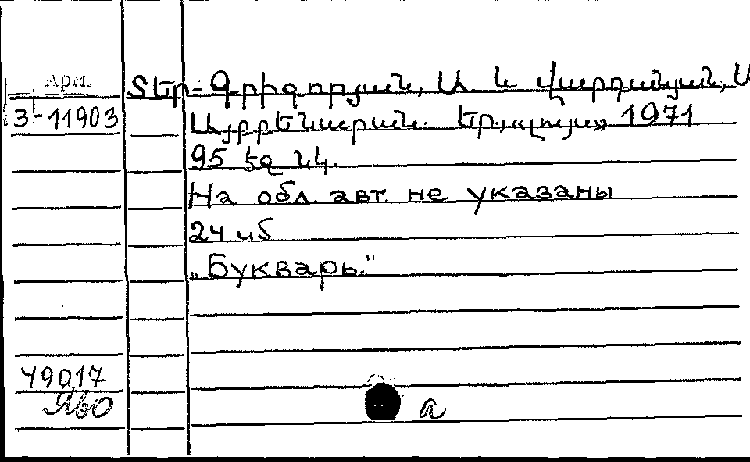 Арм.
Տեր-Գրիգորյան, Ա. և Վարդանյան, Ս
3-11903
Այբբենարան. Եր., «Լույս» 1971
95 էջ նկ.
На обл. авт. не указаны
24 иб
„Букварь."
49017
ЯвО
а